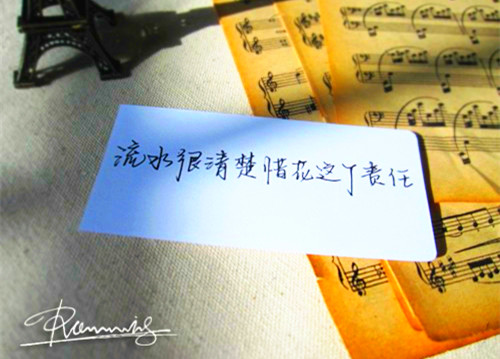 流水很清楚惜花这丫责任